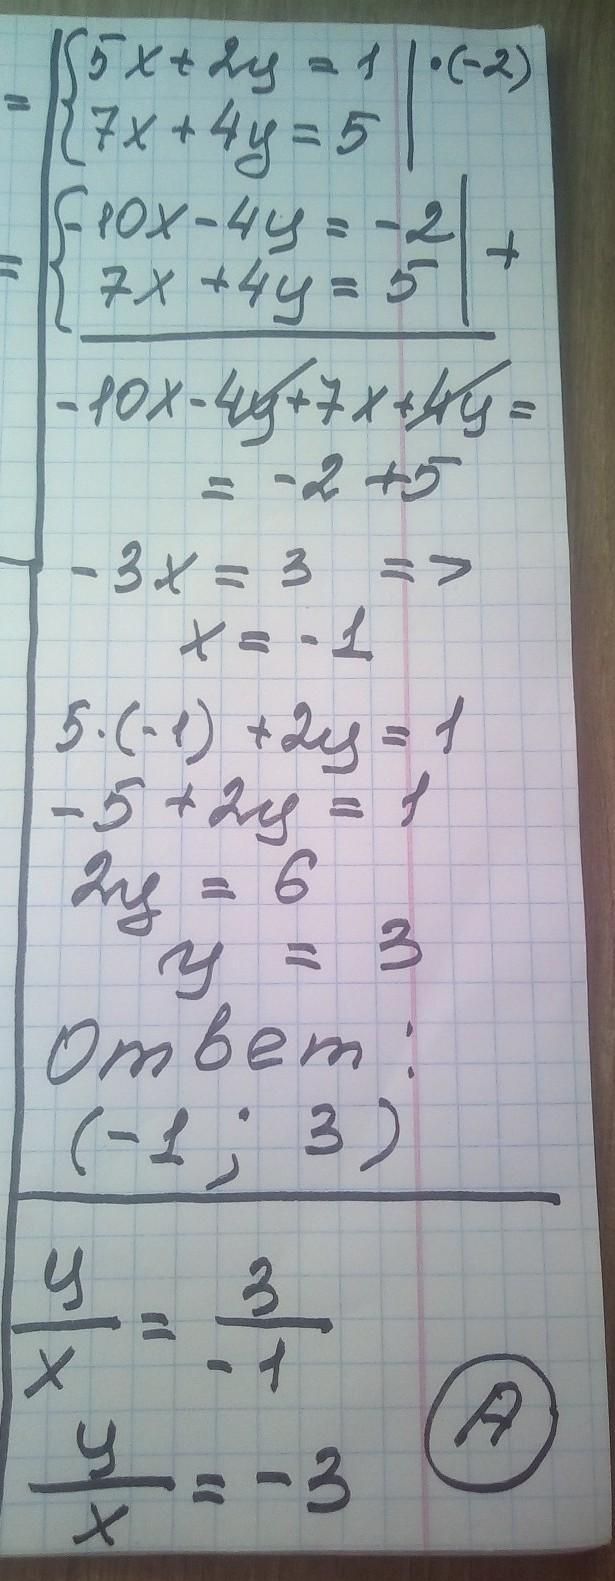 = { 5x + 2y = 1 | · (-2)
{ 7x + 4y = 5 |
= { -10x - 4y = -2 | +
{ 7x + 4y = 5 |
-10x - 4y + 7x + 4y =
= -2 + 5
-3x = 3 =>
x = -1
5 · (-1) + 2y = 1
-5 + 2y = 1
2y = 6
y = 3
Ответ:
(-1 ; 3)
y/x = 3/-1
A
y/x = -3